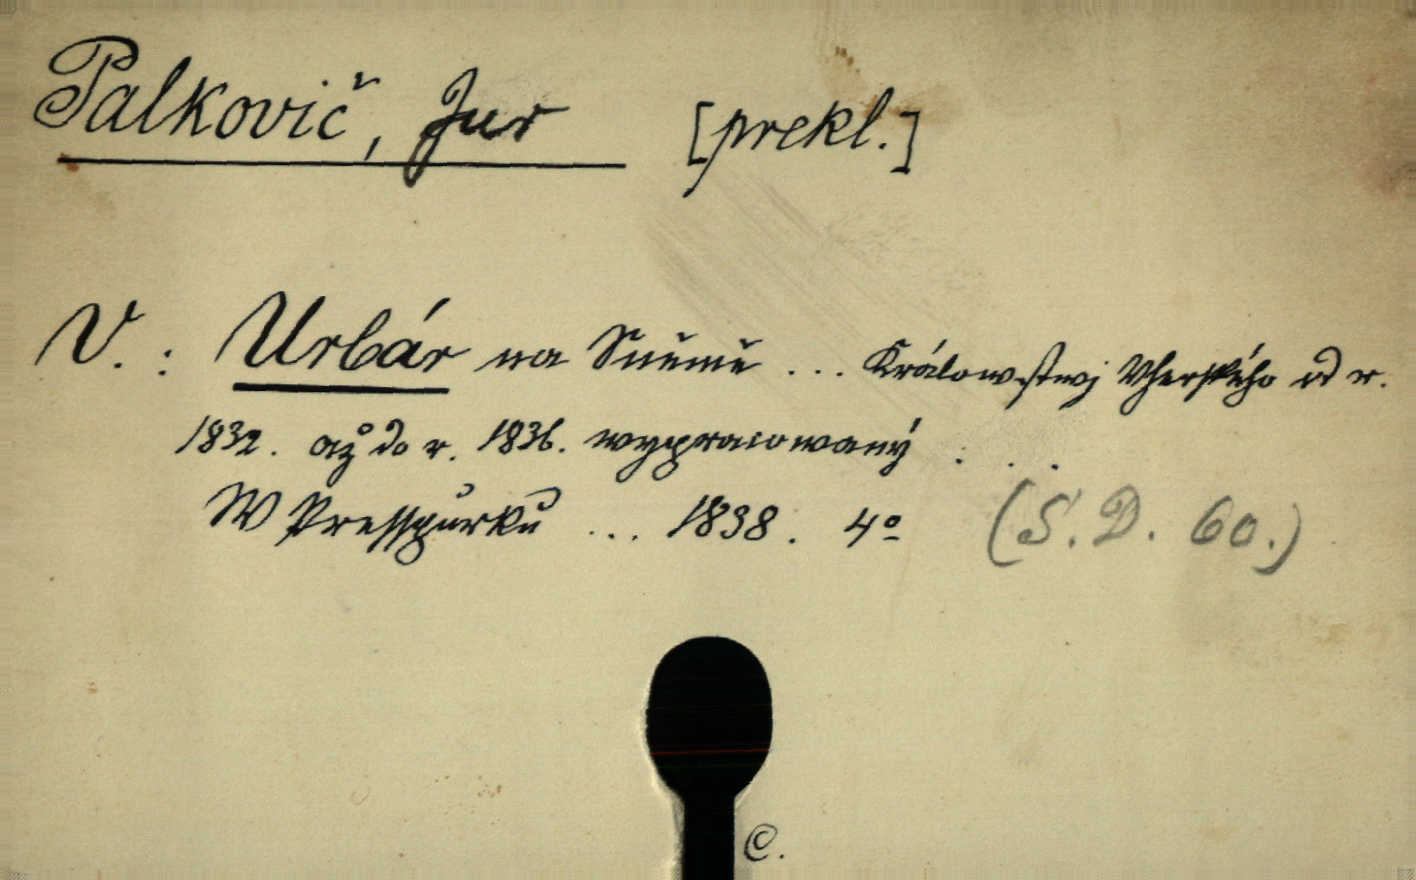 Palkovič, Jur [prekl.]
V. : Urbár na Sněmě ... Králowstwj Vherského od r.
1832. až do r. 1836. wypracowaný . . .
W Presspurku ... 1838. 4º (S. D. 60.)
C.